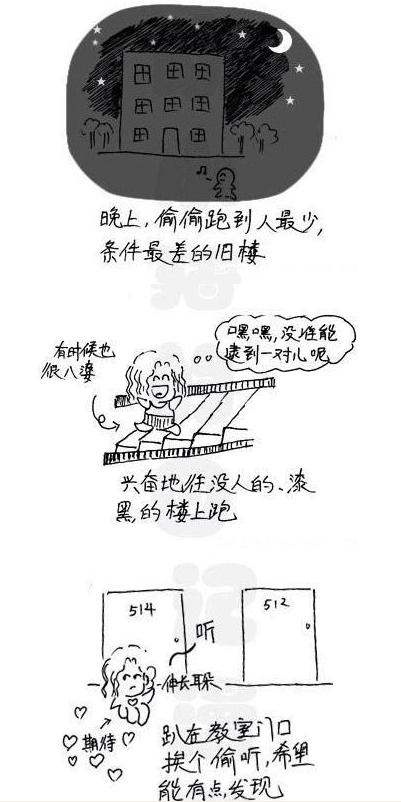 晚上，偷偷跑到人最少，
条件最差的旧楼
嘿嘿，没准能
逮到一对儿呢
有时候也
很八婆
兴奋地往没人的、漆
黑的楼上跑
514
512
听
伸长耳朵
期待
趴在教室门口
挨个偷听，希望
能有点发现